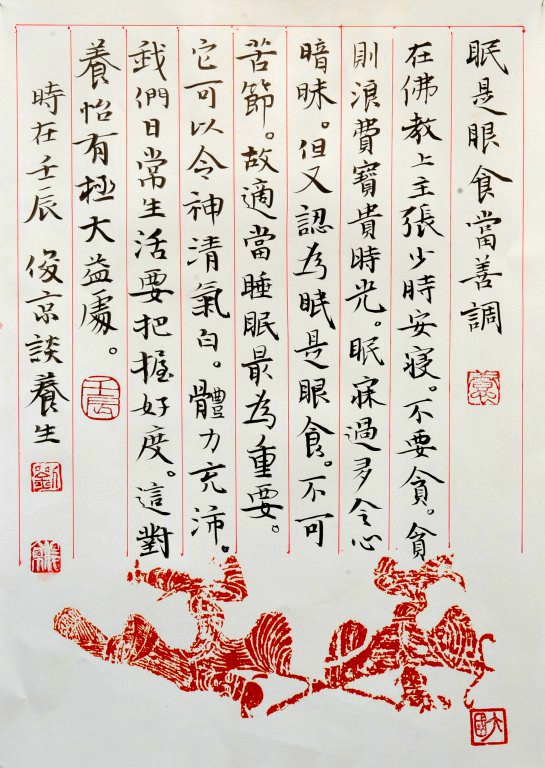 眠是眼食當善調
在佛教上主張少時安寢。不要貪。貪
則浪費寶貴時光。眠寐過多令心
暗昧。但又認為眠是眼食。不可
苦節。故適當睡眠最為重要。
它可以令神清氣白。體力充沛。
我們日常生活要把握好度。這對
養怡有極大益處。
時在壬辰 俊京談養生
壬辰
劉